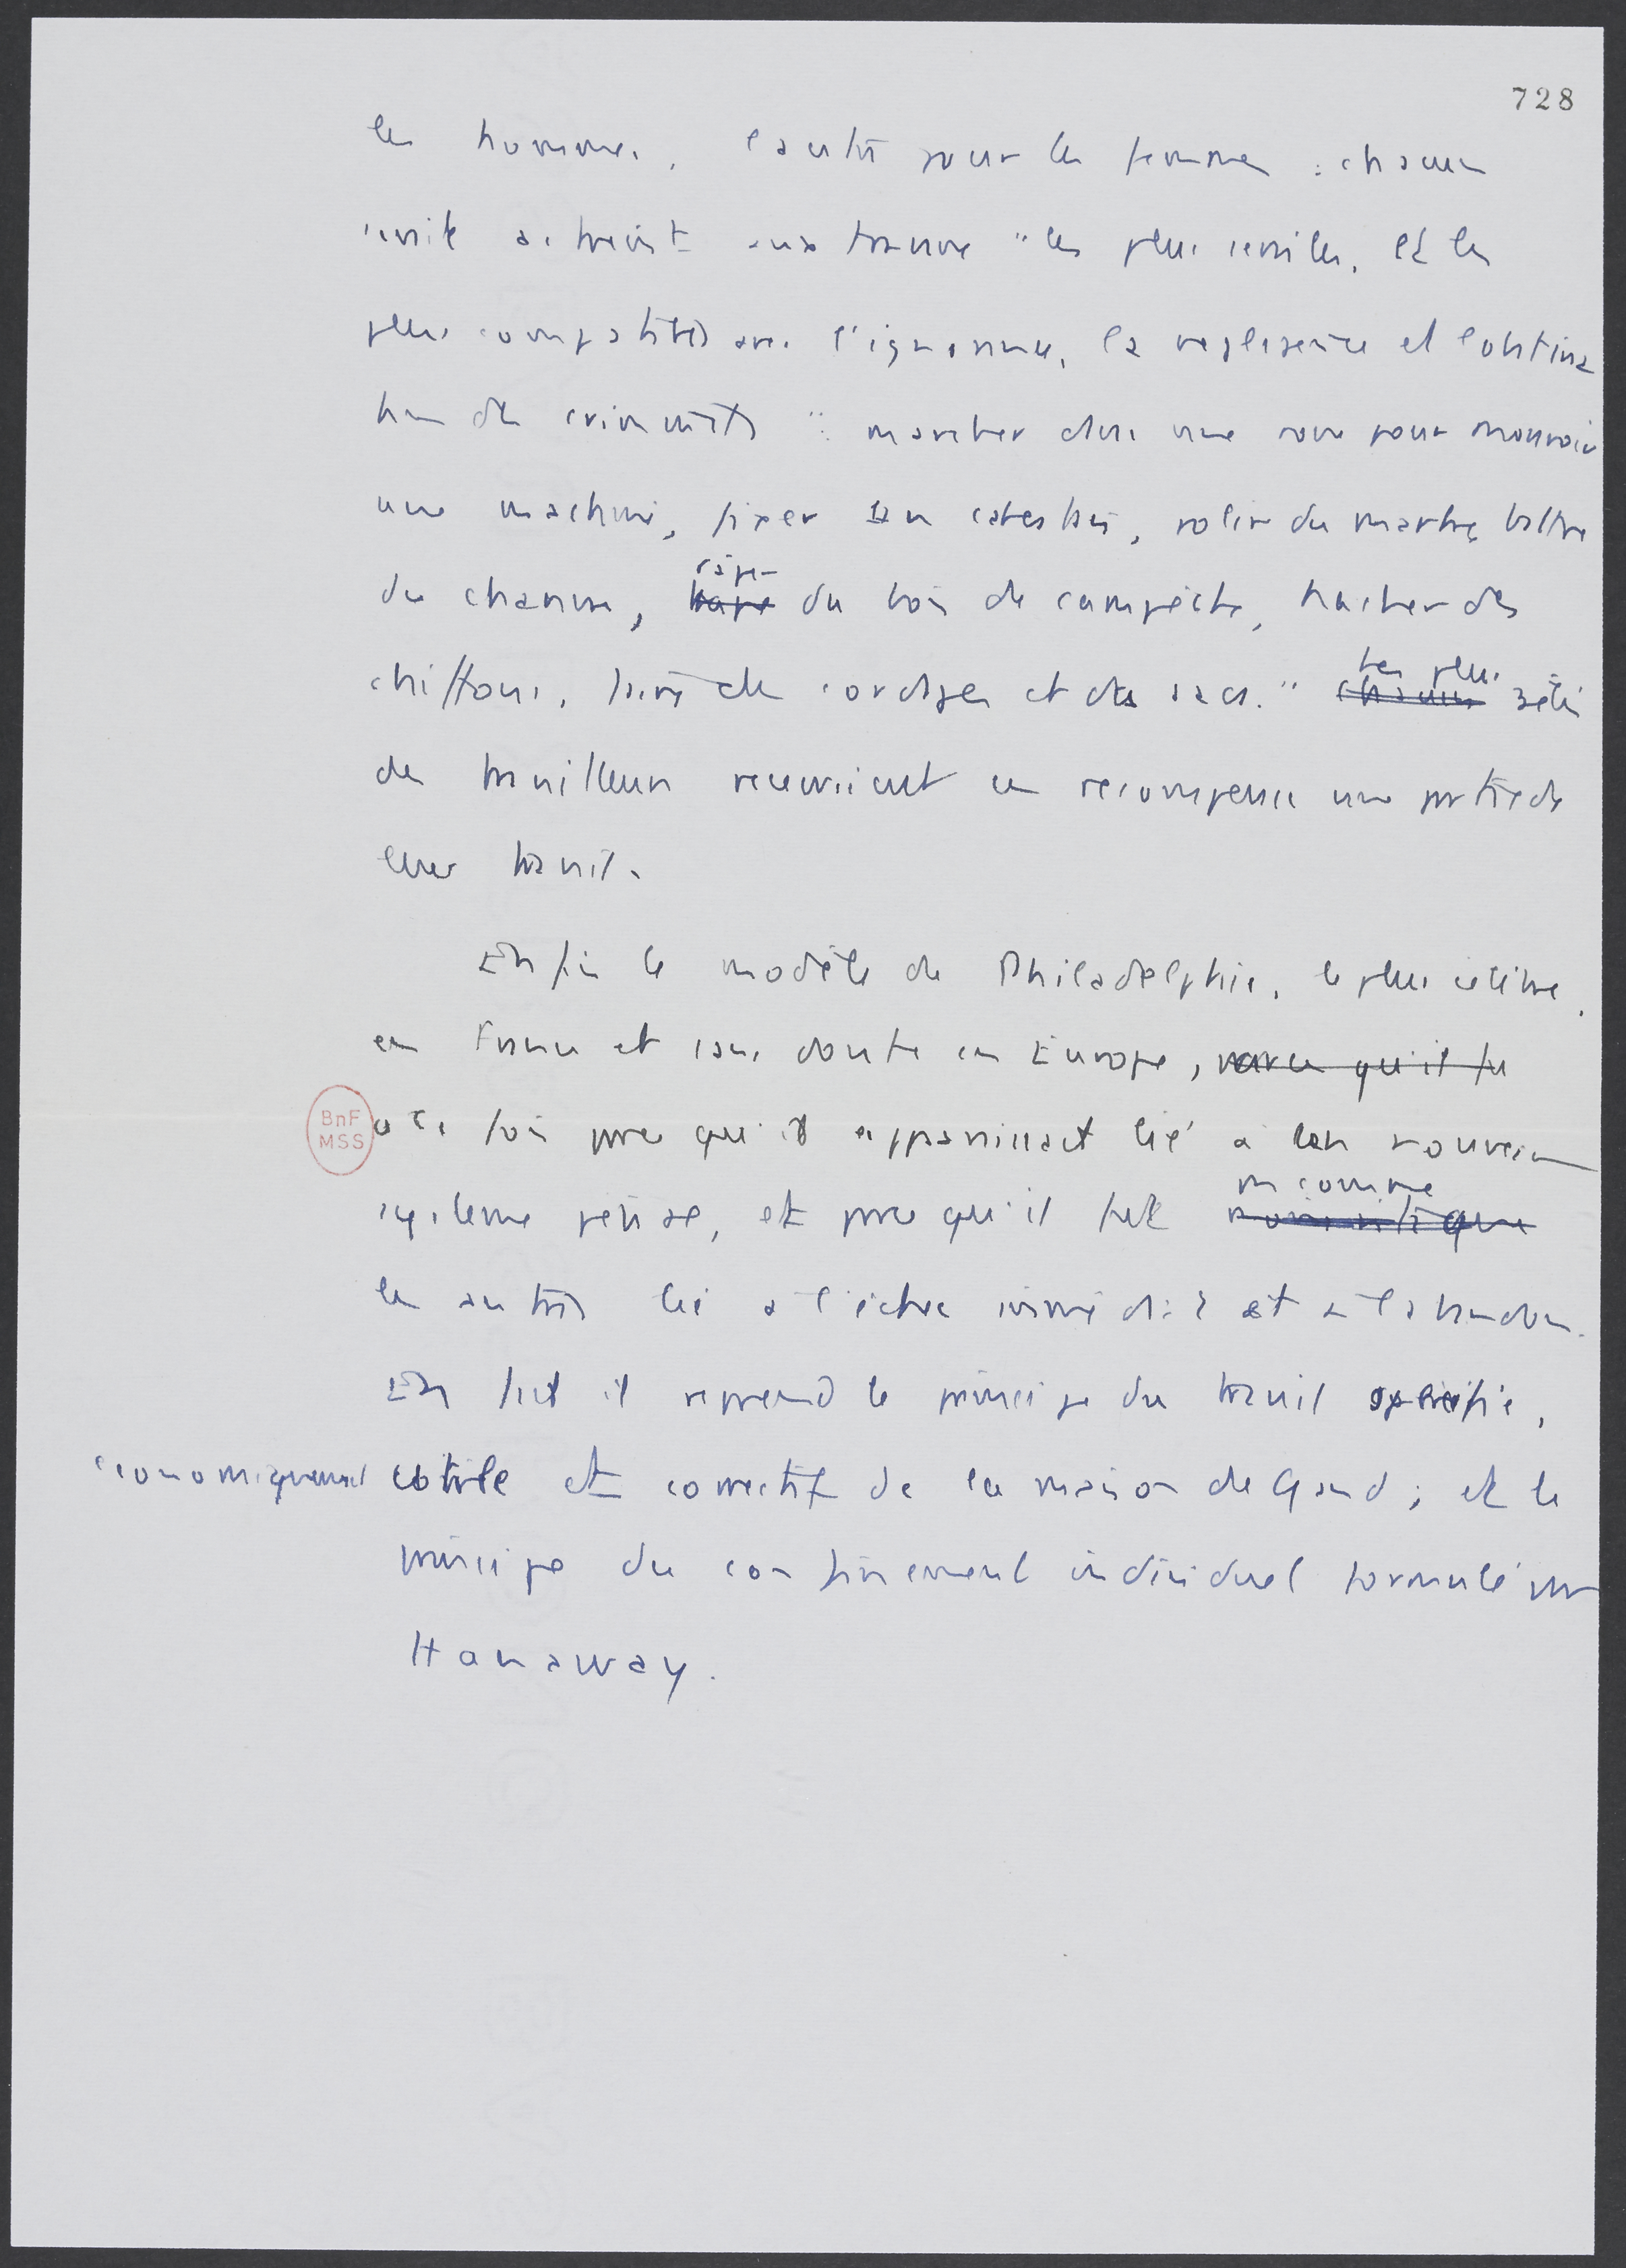 728
les hommes, l'autre pour les femmes : chacun
serait astreint aux travaux "les plus serviles, et les
plus compatibles avec l'ignorance, la negligence et l'obstina
tion des criminels" : marcher dans une roue pour mouvoir
une machine, fixer un cabestan, polir du marbre, battre
du chanvre, râper du bois de campêche, hacher des
chiffons, faire des cordages et des sacs." Les plus zélés
des travailleurs recevraient en recompense une partie de
leur travail.
Enfin le modèle de Philadelphie, le plus célèbre,
en France et sans doute en Europe, parce qu'il fu
à la fois parce qu'il apparaissait lié à un nouveau
système pénal, et parce qu'il fut
comme
les autres lié à l'échec immédiat et à l'abandon.
En fait il reprend le principe du travail specifié,
economiquement utile et correctif de la maison de Gand ; et le
principe du confinement individuel formulé par
Hanaway.
BnF
MSS